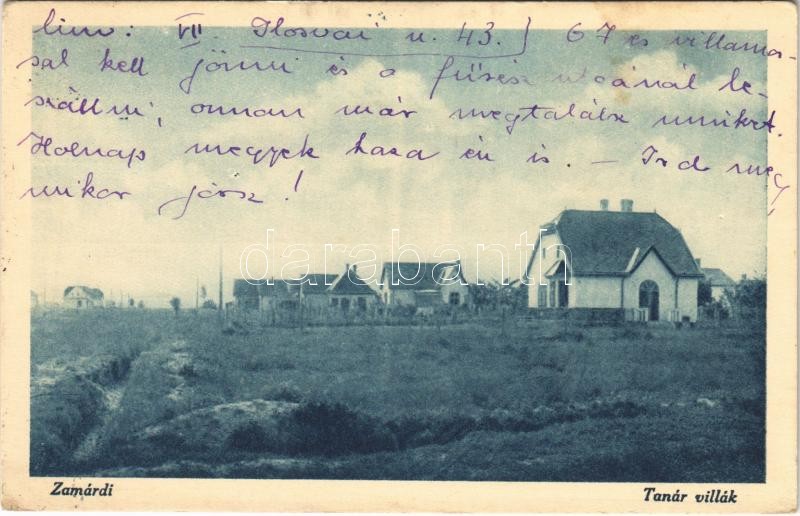 lim: VII Ilosvai u. 43. 67 es villamos-
sal kell jönni és a fűrész utcánál le-
szállni, onnan már megtalálsz minket.
Holnap megyek haza én is. – Ird meg,
mikor jösz!
darabanth
Zamárdi Tanár villák